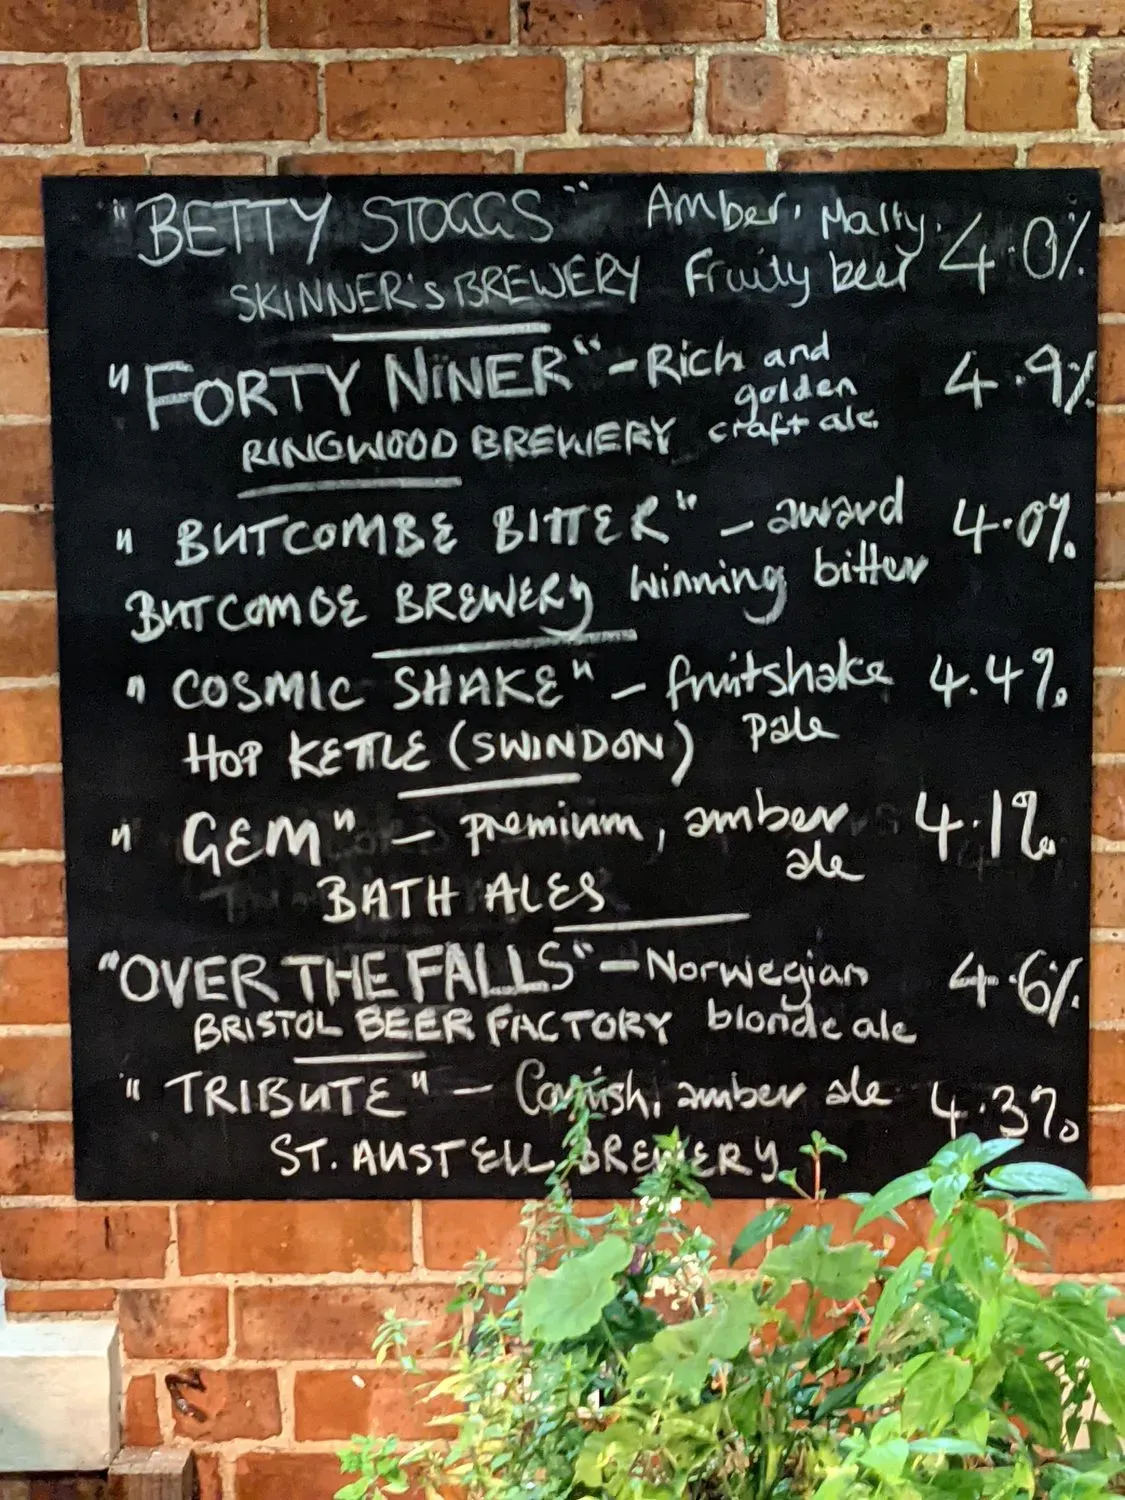 "BETTY STOGGS" Amber, Malty,
SKINNER'S BREWERY Fruity beer 4.0%
"FORTY NINER" - Rich and
golden 4.9%
RINGWOOD BREWERY craft ale
"BUTCOMBE BITTER" - award 4.0%
BUTCOMBE BREWERY winning bitter
"COSMIC SHAKE" - fruitshake 4.4%
HOP KETTLE (SWINDON) pale
"GEM" - premium, amber 4.1%
ale
BATH ALES
"OVER THE FALLS" - Norwegian 4.6%
BRISTOL BEER FACTORY blonde ale
"TRIBUTE" - Cornish, amber ale 4.3%
ST. AUSTELL BREWERY